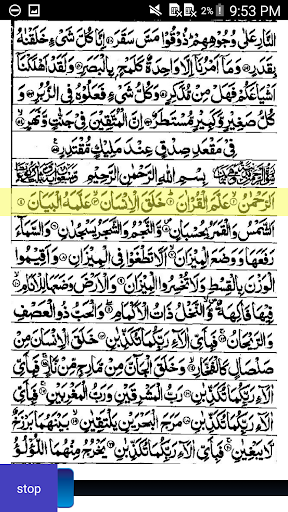 2% 9:53 PM
النَّارِ عَلَىٰ وُجُوهِهِمْ ذُوقُوا مَسَّ سَقَرَ إِنَّا كُلَّ شَيْءٍ خَلَقْنَاهُ
بِقَدَرٍ وَمَا أَمْرُنَا إِلَّا وَاحِدَةٌ كَلَمْحٍ بِالْبَصَرِ وَلَقَدْ أَهْلَكْنَا
أَشْيَاعَكُمْ فَهَلْ مِنْ مُدَّكِرٍ وَكُلُّ شَيْءٍ فَعَلُوهُ فِي الزُّبُرِ
وَكُلُّ صَغِيرٍ وَكَبِيرٍ مُسْتَطَرٌ إِنَّ الْمُتَّقِينَ فِي جَنَّاتٍ وَنَهَرٍ
فِي مَقْعَدِ صِدْقٍ عِنْدَ مَلِيكٍ مُقْتَدِرٍ
بِسْمِ اللهِ الرَّحْمٰنِ الرَّحِيْمِ
الرَّحْمٰنُ عَلَّمَ الْقُرْآنَ خَلَقَ الْإِنْسَانَ عَلَّمَهُ الْبَيَانَ
الشَّمْسُ وَالْقَمَرُ بِحُسْبَانٍ وَالنَّجْمُ وَالشَّجَرُ يَسْجُدَانِ وَالسَّمَاءَ
رَفَعَهَا وَوَضَعَ الْمِيزَانَ أَلَّا تَطْغَوْا فِي الْمِيزَانِ وَأَقِيمُوا
الْوَزْنَ بِالْقِسْطِ وَلَا تُخْسِرُوا الْمِيزَانَ وَالْأَرْضَ وَضَعَهَا لِلْأَنَامِ
فِيهَا فَاكِهَةٌ وَالنَّخْلُ ذَاتُ الْأَكْمَامِ وَالْحَبُّ ذُو الْعَصْفِ
وَالرَّيْحَانُ فَبِأَيِّ آلَاءِ رَبِّكُمَا تُكَذِّبَانِ خَلَقَ الْإِنْسَانَ مِنْ
صَلْصَالٍ كَالْفَخَّارِ وَخَلَقَ الْجَانَّ مِنْ مَارِجٍ مِنْ نَارٍ فَبِأَيِّ
آلَاءِ رَبِّكُمَا تُكَذِّبَانِ رَبُّ الْمَشْرِقَيْنِ وَرَبُّ الْمَغْرِبَيْنِ فَبِأَيِّ
آلَاءِ رَبِّكُمَا تُكَذِّبَانِ مَرَجَ الْبَحْرَيْنِ يَلْتَقِيَانِ بَيْنَهُمَا بَرْزَخٌ
لَا يَبْغِيَانِ فَبِأَيِّ آلَاءِ رَبِّكُمَا تُكَذِّبَانِ يَخْرُجُ مِنْهُمَا اللُّؤْلُؤُ
stop